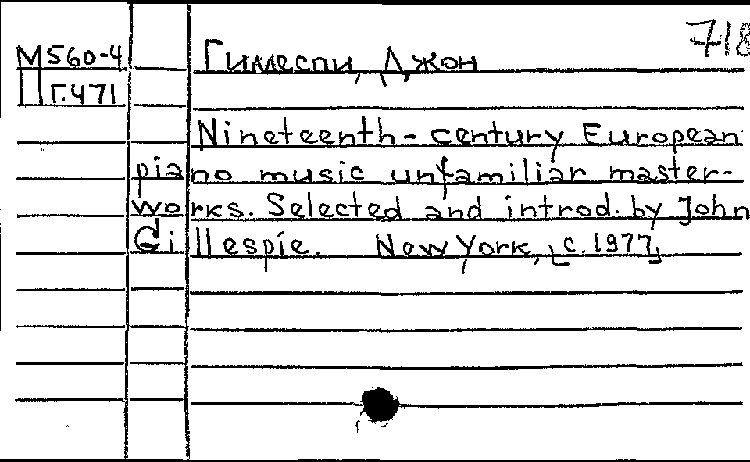 718
М560-4
П Г.471
Гиллеспи, Джон
Nineteenth-century European
piano music unfamiliar master-
works. Selected and introd. by John
Gillespie. New York, [c. 1977]